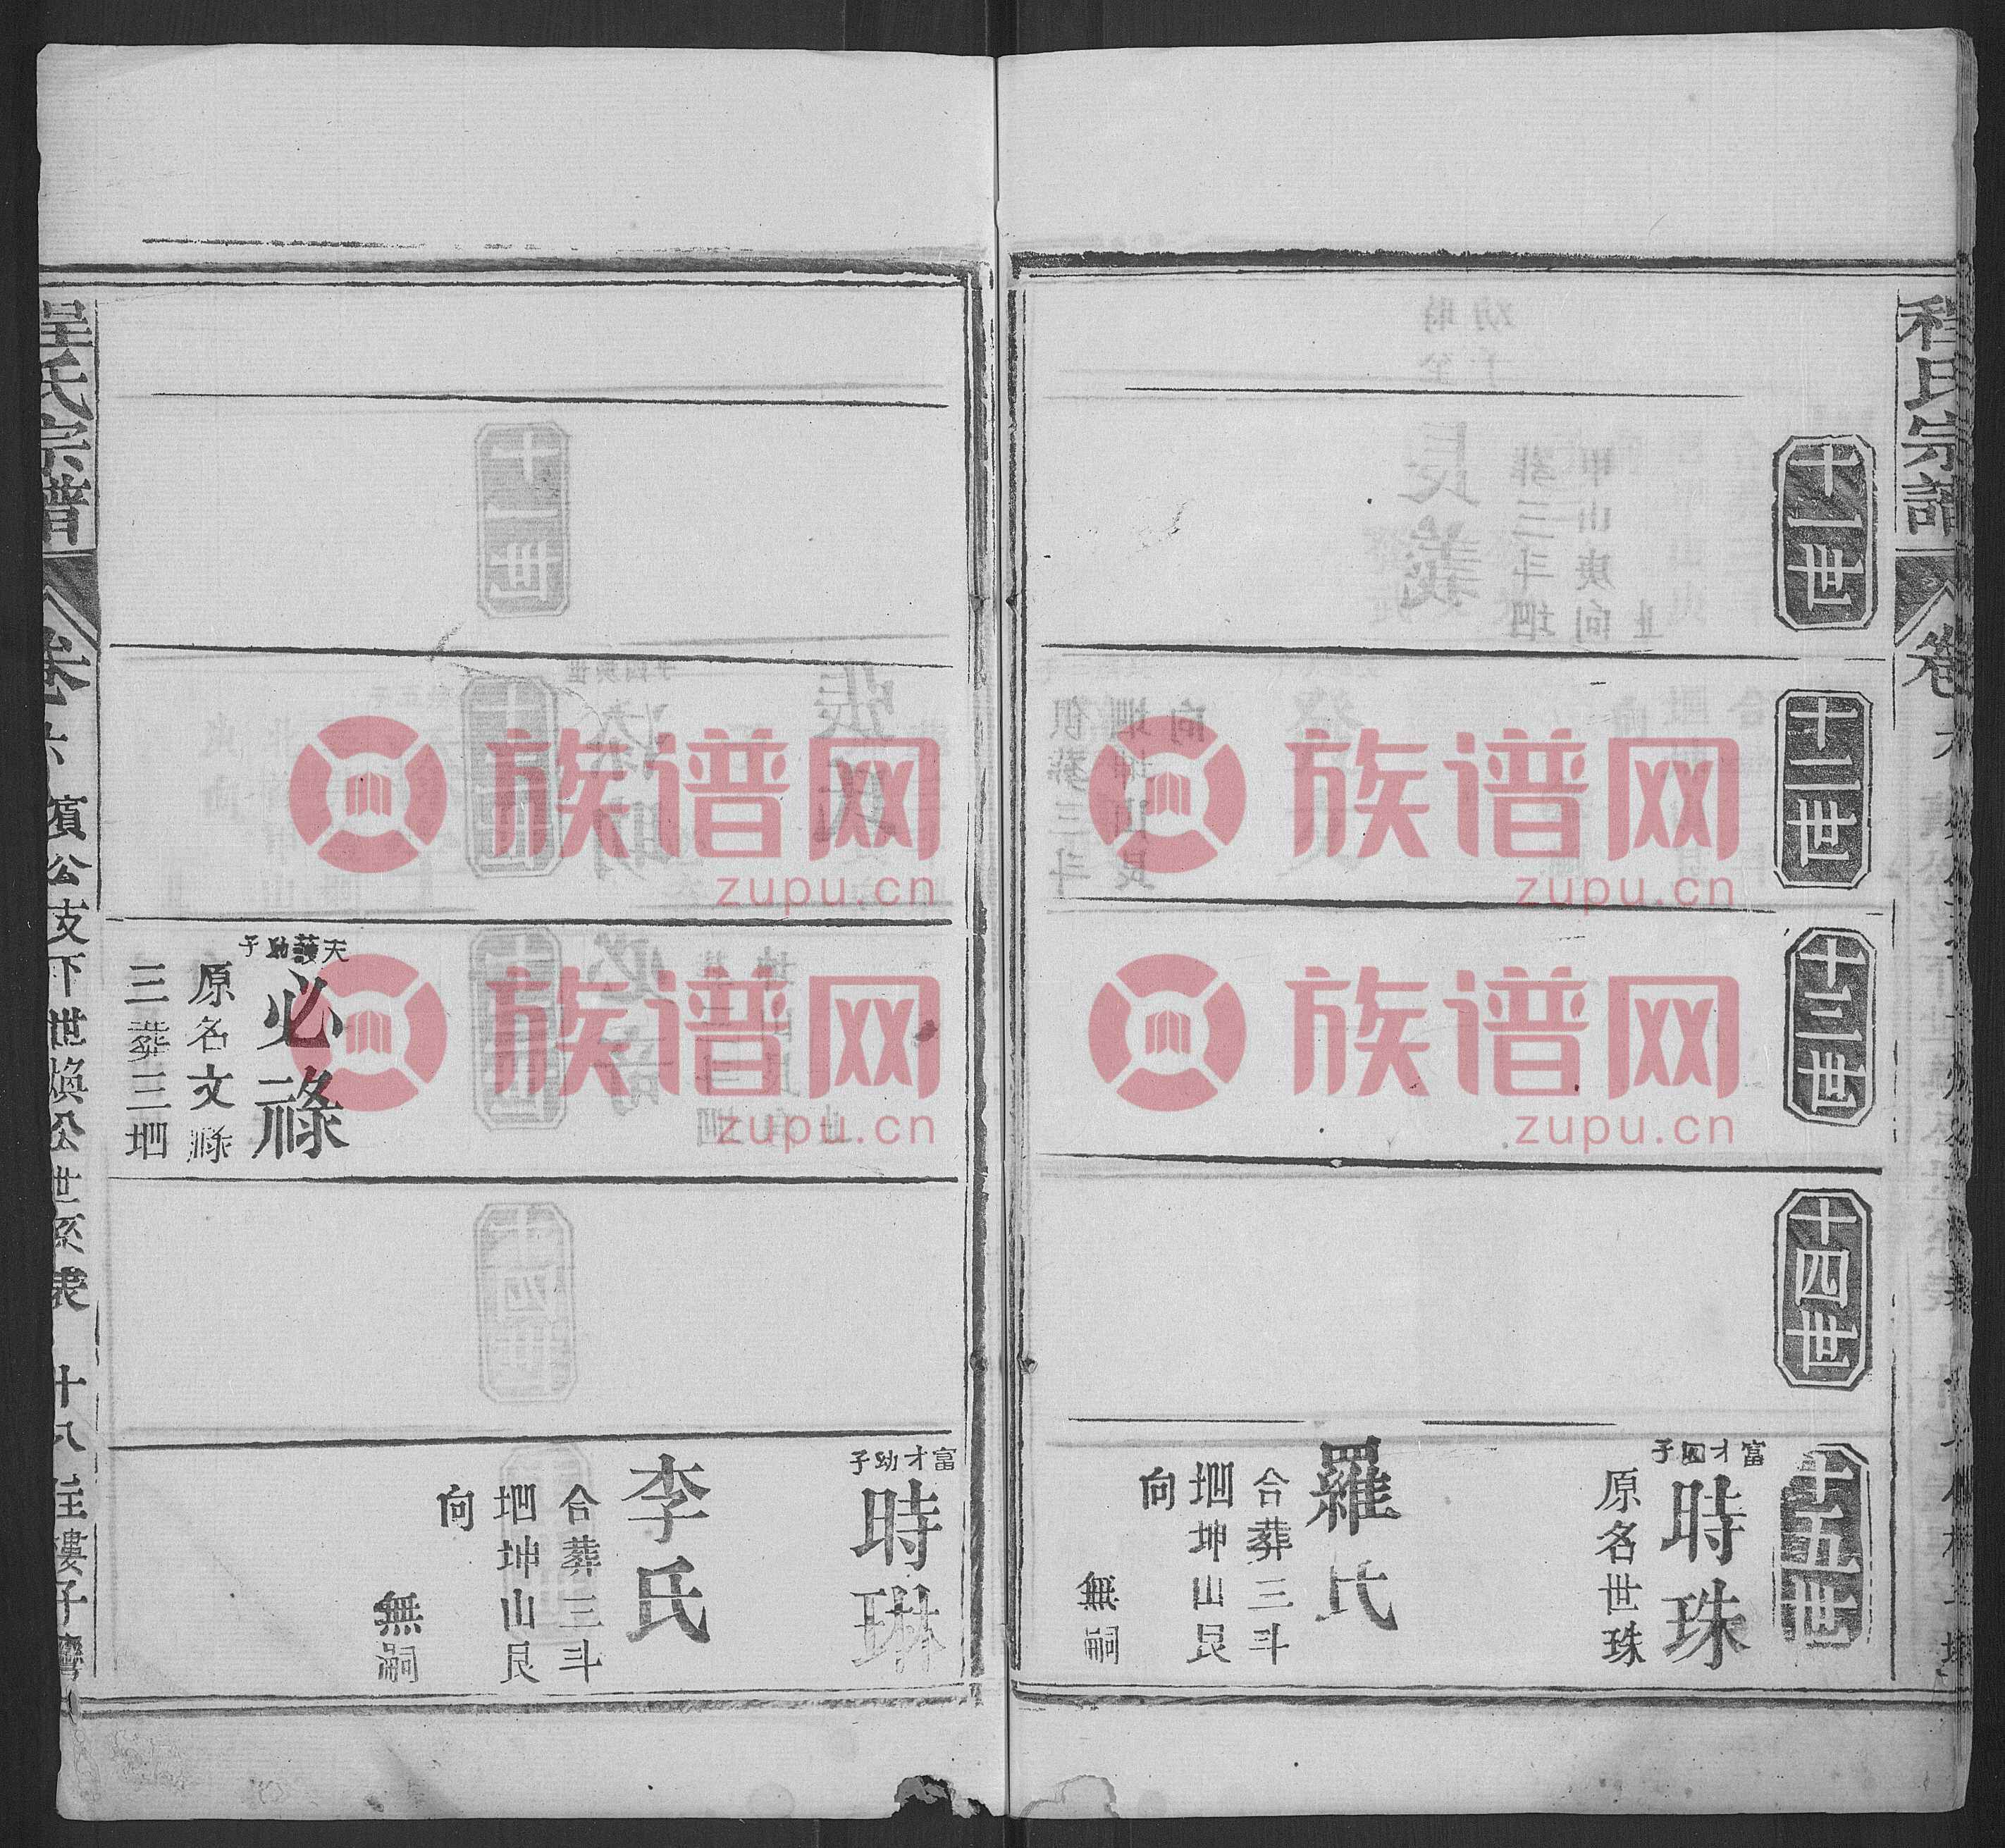 程氏宗譜
卷六
十一世
十二世
十三世
十四世
十五世
富才四子
時珠
原名世珠
羅氏
合葬三斗
坵坤山艮
向
無嗣
富才幼子
時琳
李氏
合葬三斗
坵坤山艮
向
無嗣
天護幼子
必祿
原名文祿
三葬三坵
程氏宗譜
卷六
濱公支下世煥公世系表
十八
住樓子灣
族谱网
zupu.cn
族谱网
zupu.cn
族谱网
zupu.cn
族谱网
zupu.cn